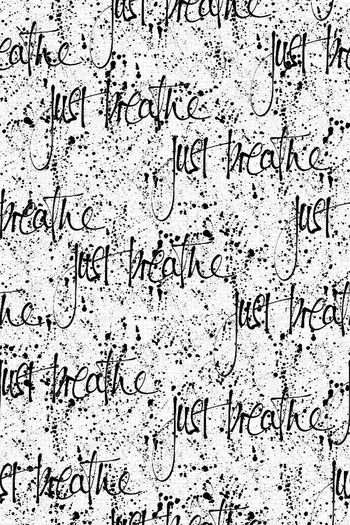 just breathe
breathe just
just breathe
just breathe
breathe just
just breathe
he just breat
just breathe
just breathe
st breathe ju
just